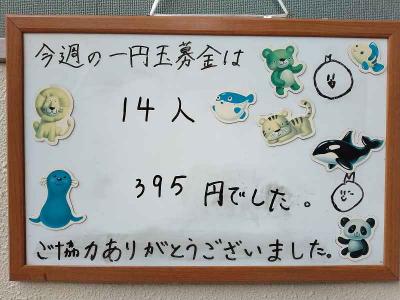 今週の一円玉募金は
14人
395円でした。
ご協力ありがとうございました。